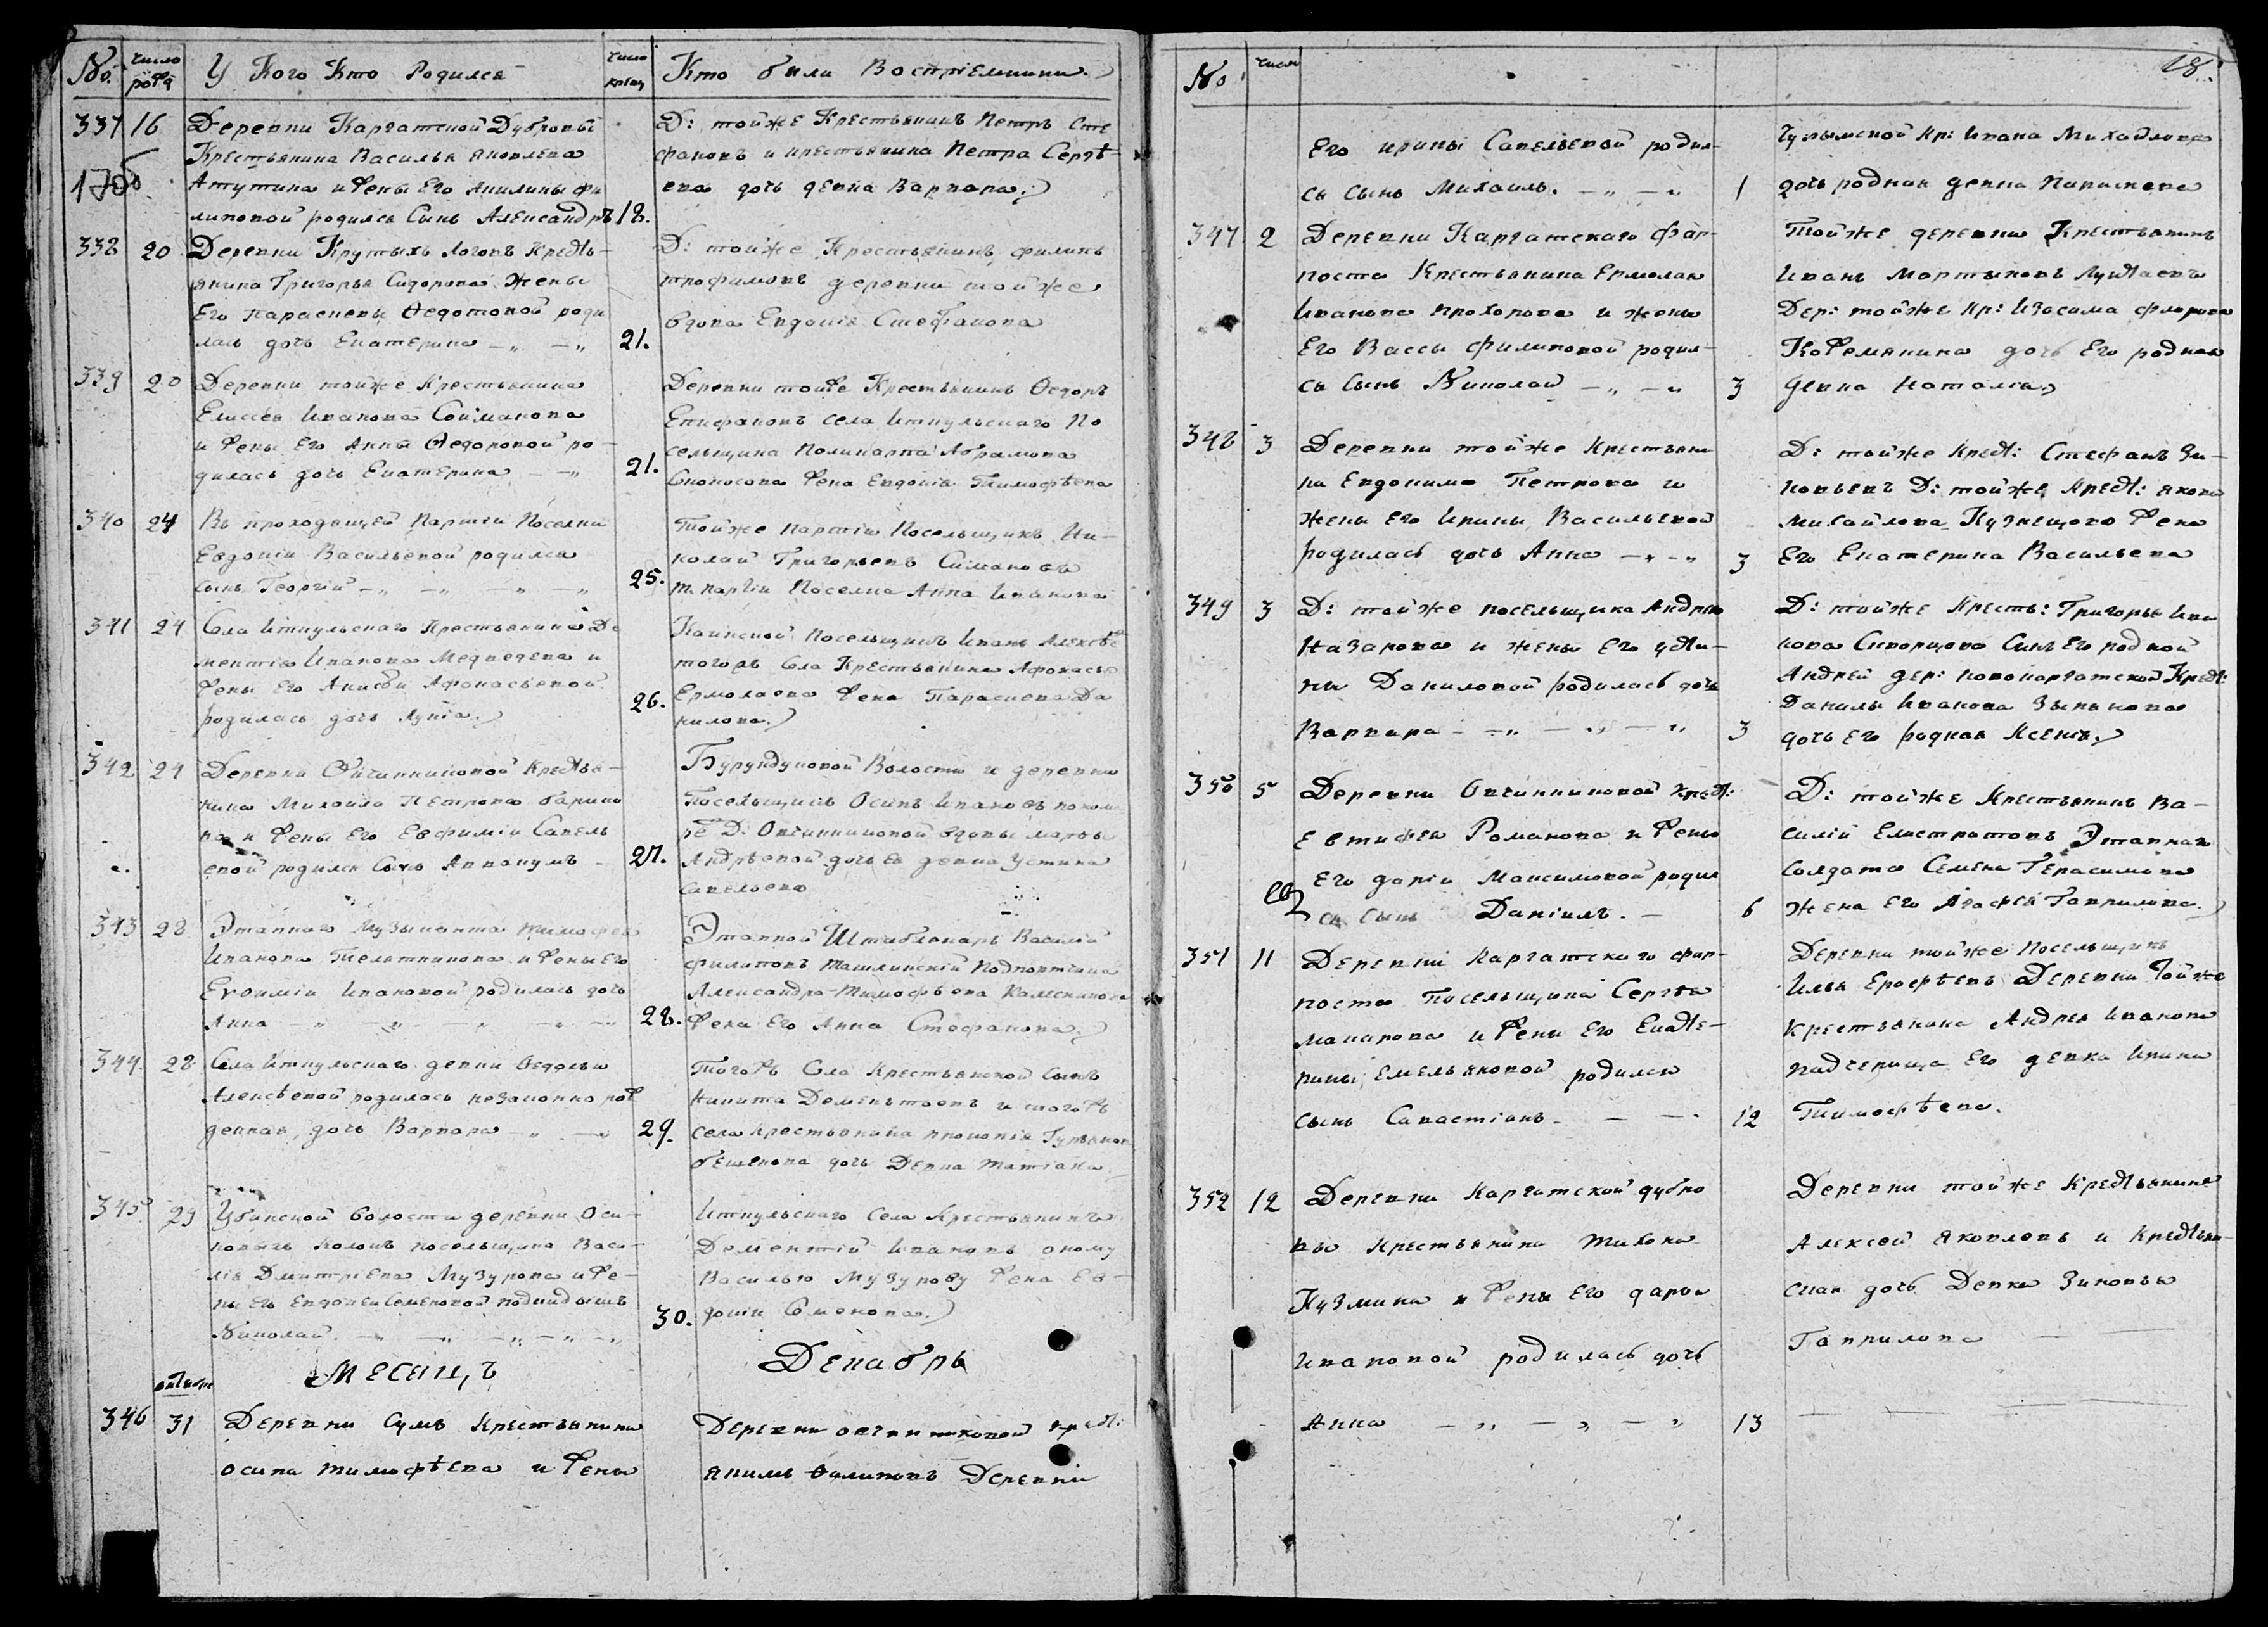 No. число рожд У Кого Кто Родился число крещ Кто были Восприемники.
337 16 Деревни Каргатской Дубровы
Крестьянина Василья Яковлева
Атутина и жены Его Акилины Фи
липовой родился Сынъ Александръ 18.
Д: тойже Крестьянинъ Петръ Сте
фановъ и крестьянина Петра Сергѣ-
ева дочь девка Варвара.
170б
338 20 Деревни Крутыхъ Логовъ Кресть-
янина Григорья Сидорова Жены
Его Параскевы Ѳедотовой роди
лась дочь Екатерина 21.
Д: тойже Крестьянинъ Филипъ
трофимовъ деревни тойже
вдова Евдокія Стефанова
339 20 Деревни тойже Крестьянина
Елисея Иванова Сойманова
и жены Его Анны Ѳедоровой ро-
дилась дочь Екатерина 21.
Деревни тойже Крестьянинъ Ѳедоръ
Епифановъ села Иткульскаго По
сельщика Поликарпа Абрамова
Сконосова жена Евдокія Тимофѣева
340 24 Въ проходящей Партіи Поселки
Евдокіи Васильевой родился
сынъ Георгій 25.
Тойже партіи Посельщикъ Ни-
колай Григорьевъ Симановъ
т. партіи Поселка Анна Иванова
341 24 Села Иткульскаго Крестьянина Де
ментія Иванова Медведева и
жены Его Анисьи Афонасьевой
родилась дочь Лукія. 26.
Каинской посельщикъ Иванъ Алексѣе
тогожъ Села Крестьянина Афонасья
Ермолаева жена Параскева Да
нилова.
342 24 Деревни Овчинниковой Крестья-
нина Михаила Петрова барино
ва и жены Его Евфиміи Савель
евой родился Сынъ Аввакумъ 27.
Бурундуковой Волости и деревни
Посельщикъ Осипъ Ивановъ
Д: Овчинниковой вдовы марфы
Андрѣевой дочь ея девка Устина
савельева
343 28 Этапнаго Музыканта тимофея
Иванова Телятникова и жены Его
Евфиміи Ивановой родилась дочь
Анна 28.
Этапной Штаблекаръ Василій
филиповъ Ташлинскій
Александра Тимофѣева Колесникова
жена Его Анна Стефанова.
344. 28 Села Иткульскаго девки Ѳедосьи
Алексѣевой родилась незаконно рож
денная дочь Варвара 29.
Тогожъ Села Крестьянской Сынъ
Никита Деменьтьевъ и тогожъ
села Крестьянина прокопія Гурьянов
бешенова дочь Девка татіана.
345 29 Убинской волости деревни Оси-
новыхъ Колокъ посельщика Васи-
лія Дмитріева Музурова и же-
ны Его Евдокеи Семеновой подкидышъ
Николай 30.
Иткульскаго Села Крестьянинъ
Дементій Ивановъ оному
Василью Музурову жена Ев-
докіи Семенова.
Месяцъ Декабрь
346 31 Деревни Сумъ Крестьянина
осипа тимофѣева и жены
Деревни овчинниковой крест:
якимъ Филиповъ Деревни
No число 18.
Его ирины Савельевой родил-
ся сынъ Михаилъ. 1
Чулымской Кр: Ивана Михайлова
дочь родная девка
347 2 Деревни Каргатскаго Фар-
поста Крестьянина Ермолая
Иванова прохорова и жены
Его Вассы филиповой родил-
ся Сынъ Николай 3
Тойже деревни Крестьянинъ
Иванъ Мартыновъ
Дер: тойже Кр: Изосима флорова
Кожемякина дочь Его родная
девка Наталья
348 3 Деревни тойже Крестьяни
на Евдокима Петрова и
жены Его Ирины Васильевой
родилась дочь Анна 3
Д: тойже крест: Стефанъ Зи-
новьевъ Д: тойже крест: якова
михайлова Кузнецова жена
Его Екатерина Васильева
349 3 Д: тойже посельщика Андрея
Назарова и жены Его усти-
ны Даниловой родилась дочь
Варвара 3
Д: тойже Кресть: Григорья Ива
нова Скворцова Сынъ Его родной
Андрей дер: новокаргатской Крест:
Данилы Иванова Зыкакова
дочь его родная Ксенія.
350 5 Деревни Овчинниковой крест:
Евтифея Романова и жены
Его даріи Максимовой родил
ся сынъ Даніилъ. 6
Д: тойже Крестьянинъ Ва-
силій Елистратовъ Этапнаго
Солдата Семена Герасимова
жена Его Агафья Гаврилова.
351 11 Деревни Каргатскаго фар-
поста Посельщика Сергѣя
макарова и жены Его Екате-
рины Емельяновой родился
сынъ Савастіанъ 12
Деревни тойже посельщикъ
Илья Ерофѣевъ Деревни Тойже
крестьянина Андрея Иванова
падчерица Его девка Ирина
Тимофѣева.
352 12 Деревни Каргатской дубро
вы Крестьянина Тихона
Кузмина и жены Его дарьи
Ивановой родилась дочь
Анна 13
Деревни тойже Крестьянинъ
Алексей яковлевъ и крестьян-
ская дочь Девка Зиновья
Гаврилова